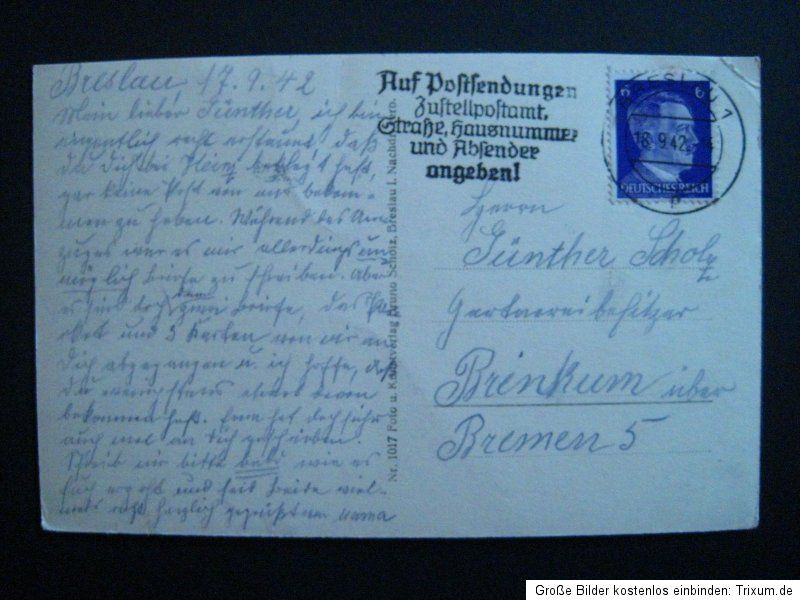 Breslau 17.9.42
Mein lieber Günther, ich bin
eigentlich recht erstaunt, daß
du dich bei Heinz beklagt hast,
gar keine Post von mir bekom-
men zu haben. Während des Um-
zuges war es mir allerdings un-
möglich Briefe zu schreiben. Aber
es sind doch zwei Briefe, das Pa-
ket und 3 Karten von mir an
dich abgegangen u. ich hoffe, daß
du wenigstens etwas davon
bekommen hast. hat doch sicher
auch mal an dich geschrieben.
Schreib mir bitte bald wie es
Euch ergeht und seid beide viel-
mals recht herzlich gegrüßt von Mama
Nr. 1017 Foto u. Kunstverlag Bruno Scholz, Breslau I, Nachdr. verb.
Auf Postsendungen
Zustellpostamt,
Straße, Hausnummer
und Absender
angeben!
BRESLAU 1
18.9.42
p
6 6
DEUTSCHES REICH
Herrn
Günther Scholz
Gartnereibesitzer
Brinkum über
Bremen 5
Große Bilder kostenlos einbinden: Trixum.de